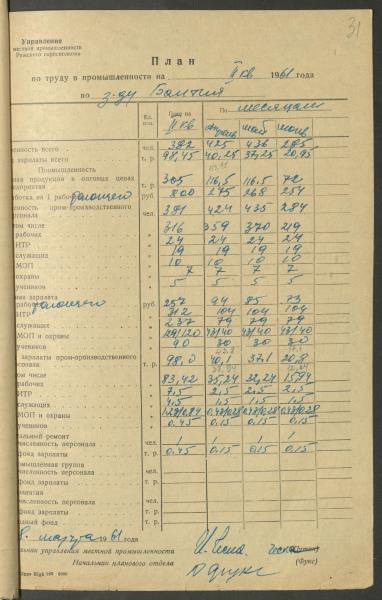 31
Управление
местной промышленности
Рижского горисполкома
План
по труду в промышленности на II кв 1961 года
по з-ду Балтия
Ед. изм. План на II кв По месяцам
апрель май июнь
ность всего чел. 382 425 436 285
зарплаты всего т. р. 98,45 40,25 37,25 20,95
Промышленность
ая продукция в оптовых ценах
предприятия т. р. 305 116,5 116,5 72
аботка, на 1 рабочего руб 800 275 268 254
енность пром-производственного
ерсонала чел. 381 424 435 284
том числе
рабочих " 316 359 370 219
ИТР " 24 24 24 24
служащих " 19 19 19 19
МОП " 10 10 10 10
охраны " 7 7 7 7
учеников " 5 5 5 5
зарплата
рабочего руб. 257 94 85 73
ИТР " 312 104 104 104
служащих " 237 79 79 79
МОП и охраны " 129/120 43/40 43/40 43/40
учеников " 90 30 30 30
зарплаты пром-производственного
ерсонала т. р. 98,0 40,1 37,1 20,8
ом числе
рабочих " 83,42 35,24 32,24 15,94
ИТР " 7,5 2,5 2,5 2,5
служащих " 4,5 1,5 1,5 1,5
МОП и охраны "
учеников " 0,45 0,15 0,15 0,15
альный ремонт
численность персонала чел. 1 1 1 1
фонд зарплаты т. р. 0,45 0,15 0,15 0,15
омышленная группа
численность персонала чел.
фонд зарплаты т. р.
численность персонала чел.
фонд зарплаты т. р.
дный фонд т. р.
8. марта 1961 года
альник управления местной промышленности
Начальник планового отдела (Фукс)